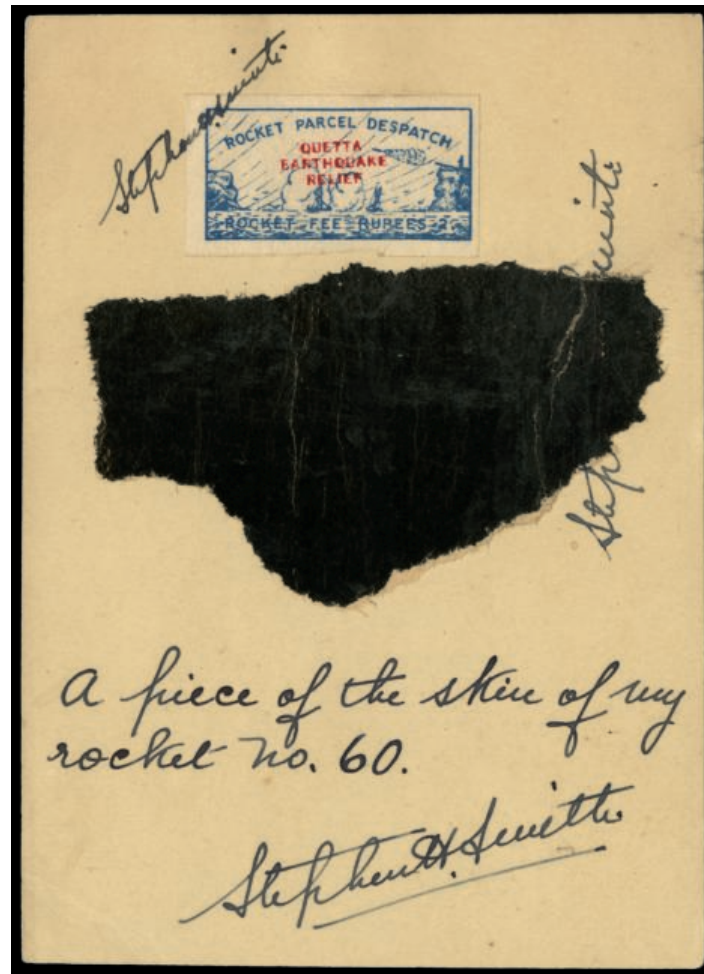 Stephen H. Smith
ROCKET PARCEL DESPATCH
QUETTA
EARTHQUAKE
RELIEF
ROCKET FEE RUPEES 2
Step Smith
A piece of the skin of my
rocket no. 60.
Stephen H. Smith